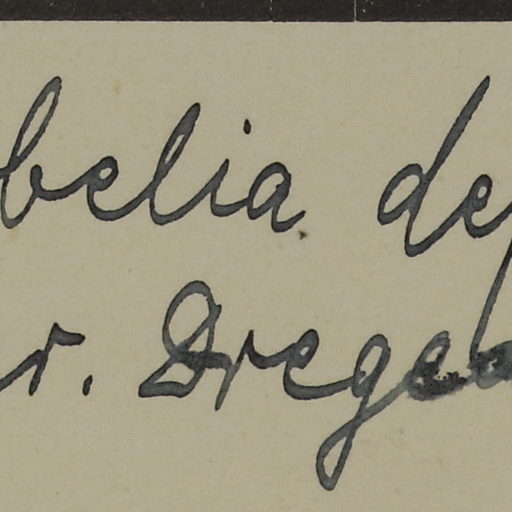 belia dep
r. Drege